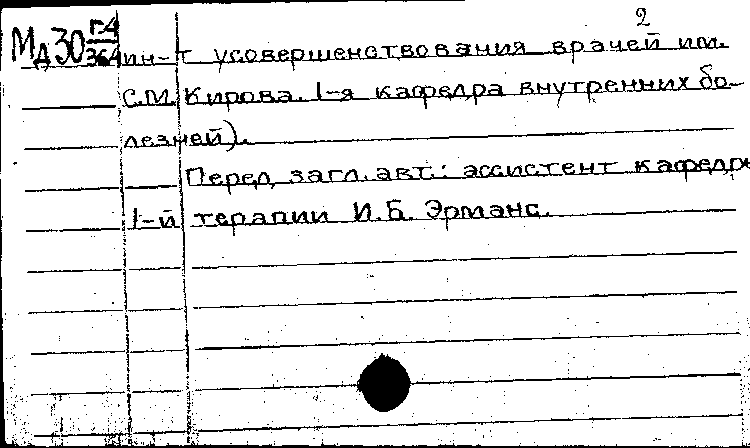 2
Мд30 г.4/364 ин-т усовершенствования врачей им.
С.М. Кирова. 1-я кафедра внутренних бо-
лезней).
Перед загл. авт.: ассистент кафедры
1-й терапии И.Б. Эрманс.